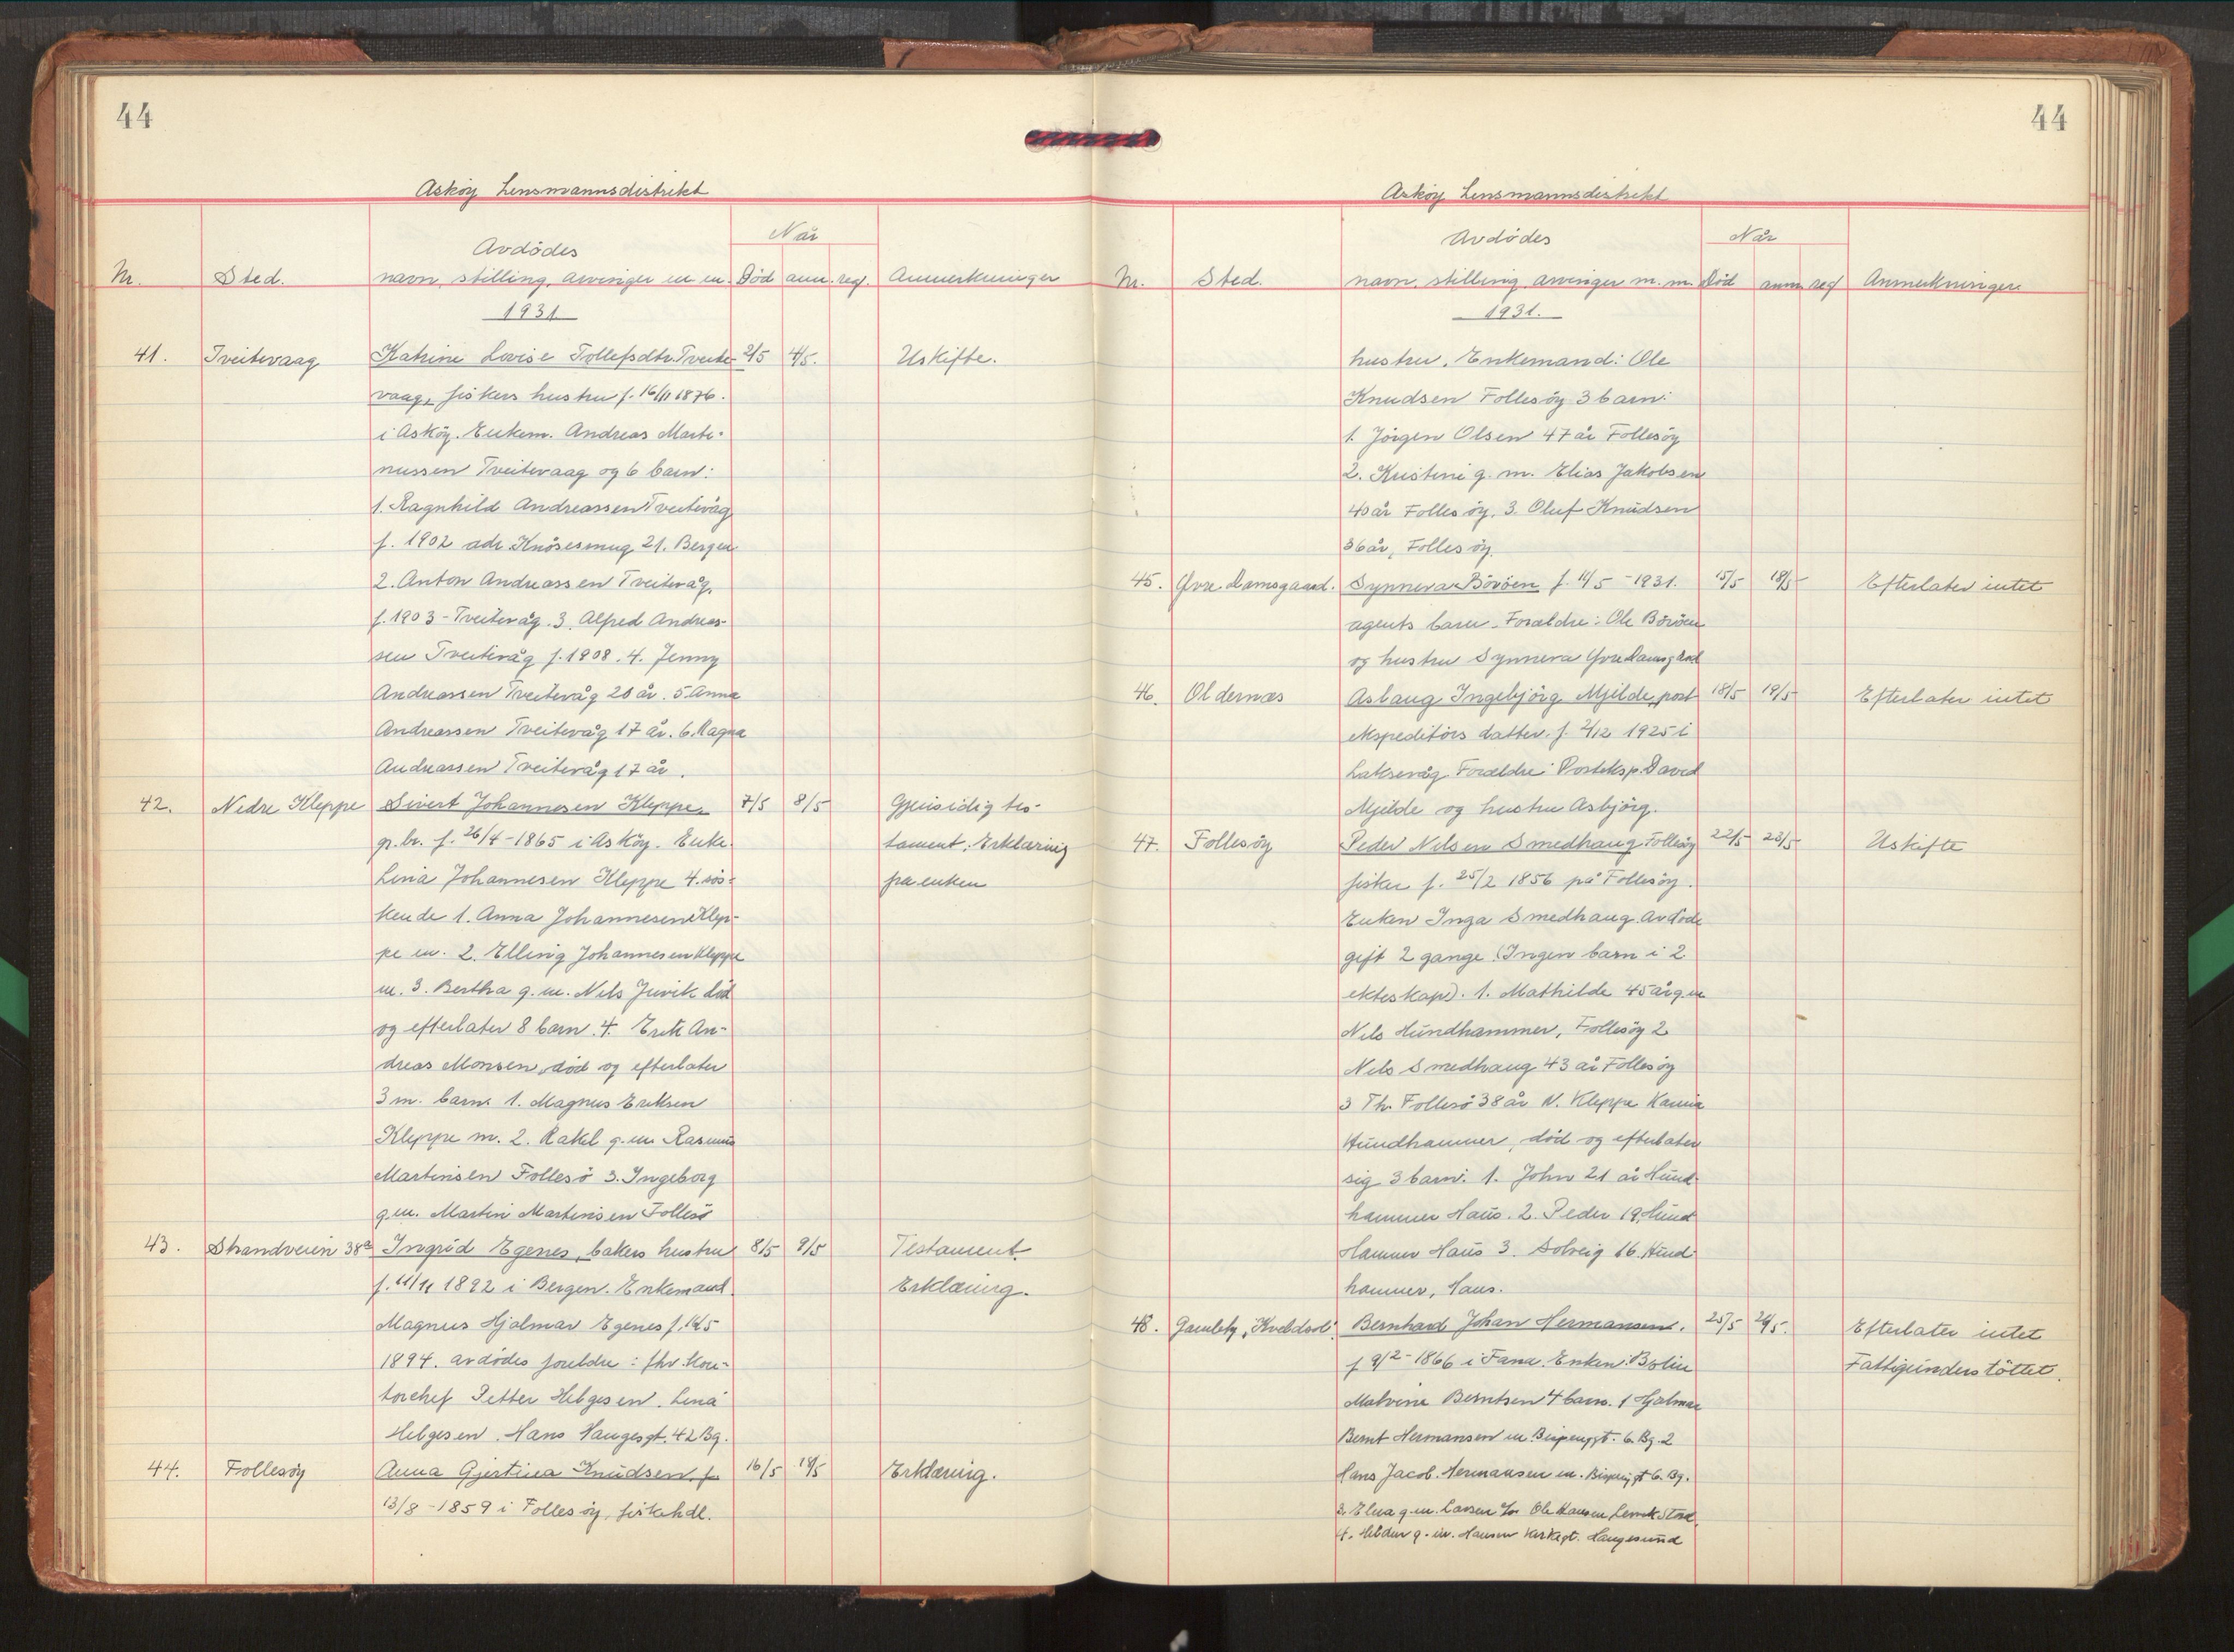 44
Askøy Lensmannsdistrikt
Avdødes
Når
Nr. Sted. navn, stilling, arvinger m m. Död anm. reg. Anmerkninger
1931
41. Tveitevaag Katrine Lovise Tollefsdtr. Tveite- 2/5 4/5. Uskifte.
vaag, fiskers hustru f. 16/11 1876.
i Askøy. Enkem. Andreas Marti-
nussen Tveitevaag og 6 barn:
1. Ragnhild Andreassen Tveitevåg
f. 1902 adr. Knösesmug 21. Bergen
2. Anton Andreassen Tveitevåg,
f. 1903 - Tveitevåg. 3. Alfred Andreas-
sen Tveitevåg f. 1908. 4. Jenny
Andreassen Tveitevåg 20 år. 5 Anna
Andreassen Tveitevåg 17 år. 6. Magna
Andreassen Tveitevåg 17 år.
42. Nedre Kleppe Sivert Johannesen Kleppe, 7/5 8/5 Gjensidig tes-
gr. br. f. 26/4-1865 i Askøy. Enke tament. Erklæring
Lina Johannesen Kleppe 4. søs- fra enken
kende 1. Anna Johannesen Klep-
pe m. 2. Elling Johannesen Kleppe
m. 3. Bertha g. m. Nils Juvik död
og efterlater 8 barn. 4. Erik An-
dreas Monsen, död og efterlater
3 m. barn: 1. Magnus Eriksen
Kleppe m. 2. Rakel g. m. Rasmus
Martinsen Follesö 3. Ingeborg
g.m. Martin Martinsen Follesö
43. Strandveien 38a Ingrid Egenes, bakers hustru 8/5 9/5 Testament.
f. 11/11 1892 i Bergen. Enkemand Erklæring.
Magnus Hjalmar Egenes f. 14/5
1894. avdödes foreldre: fhv. Kon-
torchef Petter Helgesen. Lina
Helgesen. Hans Haugesgt. 42 Bg.
44. Follesöy Anna Gjertina Knudsen, f. 16/5 19/5 Erklæring.
13/8-1859 i Follesöy, fiskehdl.
44
Askøy Lensmannsdistrikt
Avdödes Når
Nr. Sted. navn, stilling arvinger m. m. Död anm reg Anmerkninger
1931.
hustru. Enkemand: Ole
Knudsen Follesöy 3 barn:
1. Jörgen Olsen 47 år Follesöy
2. Kristine g. m. Elias Jakobsen
40 år Follesöy. 3. Oluf Knudsen
36 år, Follesöy.
45. Øvre Damsgaard. Synneva Böröen f. 11/5-1931. 15/5 18/5 Efterlater intet
agents barn. Forældre: Ole Böröen
og hustru Synneva Øvre Damsgård
46. Oldernæs Aslaug Ingebjörg Mjelde, post 18/5 19/5 Efterlater intet
ekspeditörs datter. f. 2/12 1925 i
Laksevåg Forældre: Posteksp. David
Mjelde og hustru Asbjörg.
47. Follesöy Peder Nilsen Smedhaug Follesöy 22/5 23/5 Uskifte
fisker f. 25/2 1856 på Follesöy.
Enken Inga Smedhaug. Avdöde
gift 2 gange (Ingen barn i 2.
ekteskap). 1. Mathilde 45 år g.m
Nils Hundhammer, Follesöy 2
Nils Smedhaug 43 år Follesöy
3 Th. Follesö 38 år N. Kleppe
Hundhammer, död og efterlater
sig 3 barn: 1. John 21 år Hund-
hammer Haus. 2. Peder 19, Hund
Hammer Haus 3. Solveig 16. Hund
hammer, Haus.
48. Bernhard Johan Hermansen. 25/5 26/5. Efterlater intet
f 9/2-1866 i Fana. Enken: Fattigunderstöttet.
Malvine Berntsen 4 barn. 1 Hjalmar
Bernt Hermansen m. 6. Bg. 2
Hans Jacob. Hermansen m. 6. Bg.
3. Elna g.m. Larsen Ole Hansen,
4. g. m. Hansen Kirkegt. Langesund